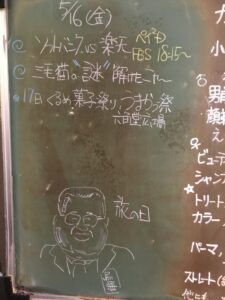 5/16(金)
@ ソフトバンク VS 楽天
ペイペイ
FBS 18:15〜
@ 三毛猫の"謎"解けたニャ〜
@ 17日 くるめ菓子祭り
六角堂広場
旅の日
カ
小
男
顔
え
ビューテ
シャン
☆トリート
カラー
パーマ,
ストレート(
他にも